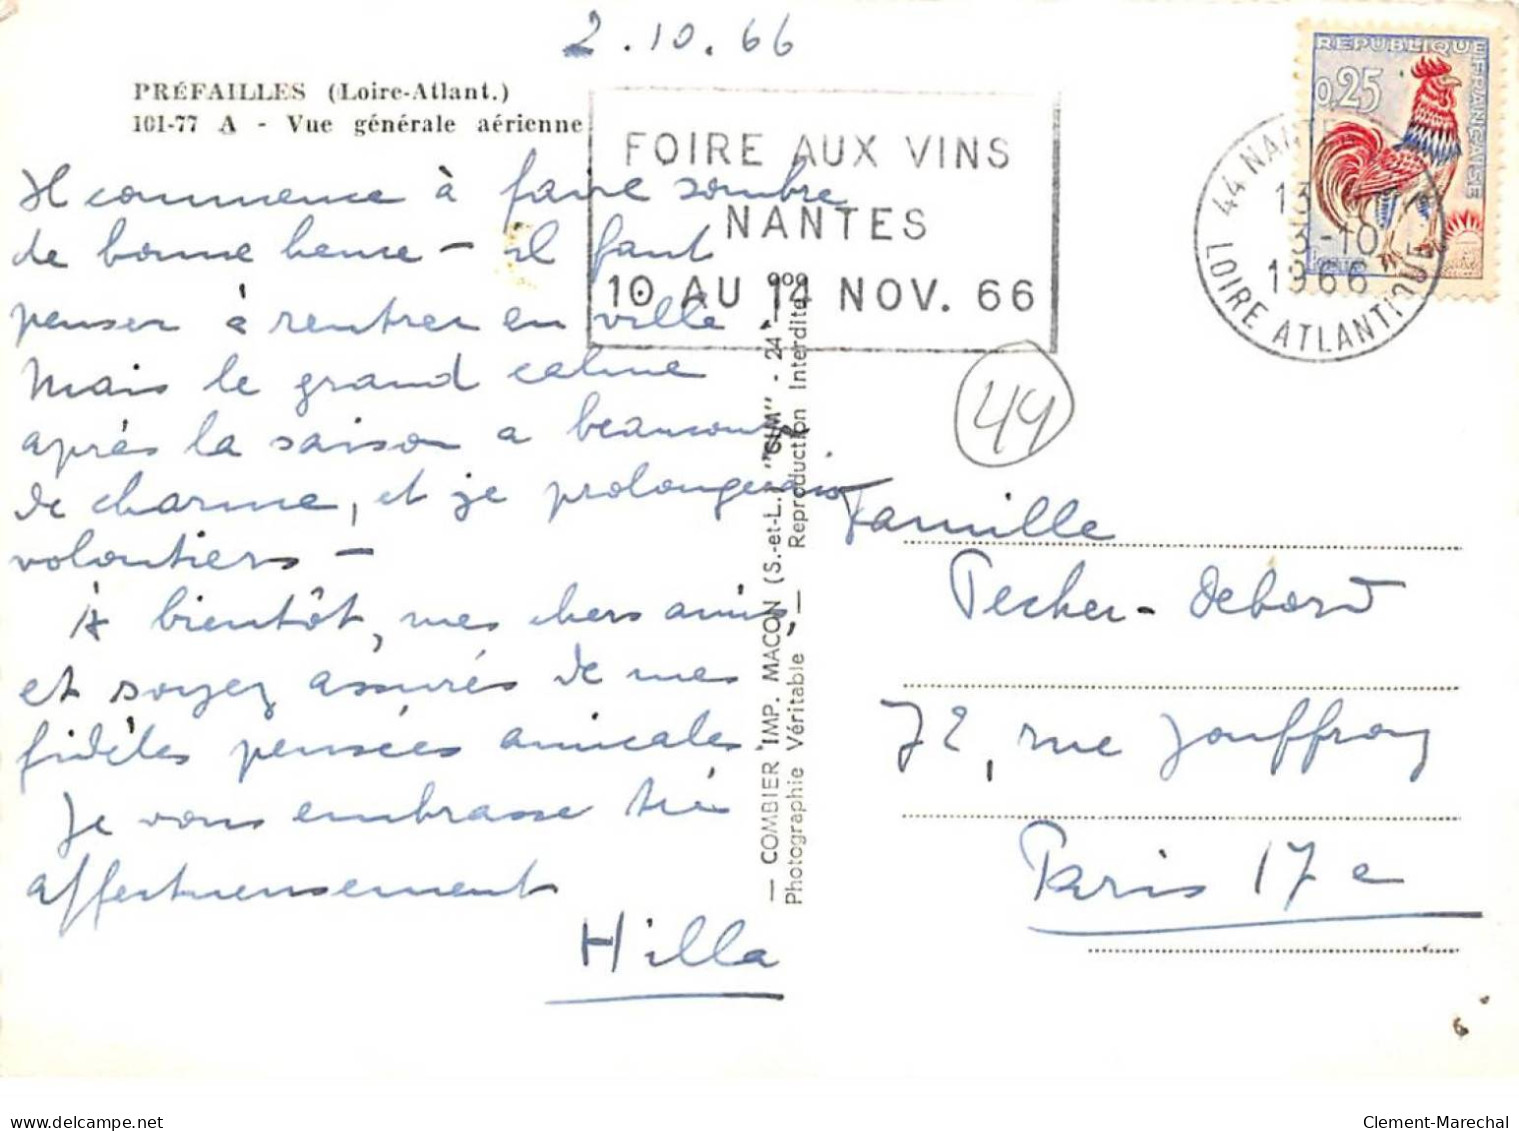 2.10.66
PRÉFAILLES (Loire-Atlant.)
101-77 A - Vue générale aérienne
Il commence à faire sombre
de bonne heure — il faut
penser à rentrer en ville !
Mais le grand calme
après la saison a beaucoup
de charme, et je prolongerais
volontiers —
À bientôt, mes chers amis,
et soyez assurés de mes
fidèles pensées amicales
Je vous embrasse très
affectueusement
Hilla
FOIRE AUX VINS
NANTES
10 AU 14 NOV. 66
REPUBLIQUE FRANÇAISE
0,25
44 NAN
13
3-10
1966
LOIRE ATLANTIQUE
44
— COMBIER IMP. MACON (S.-et-L.) "CIM" - 24
Photographie Véritable — Reproduction Interdite
Famille
Pecker-Debord
72, rue Jouffroy
Paris 17e
delcampe.net
Clement-Marechal